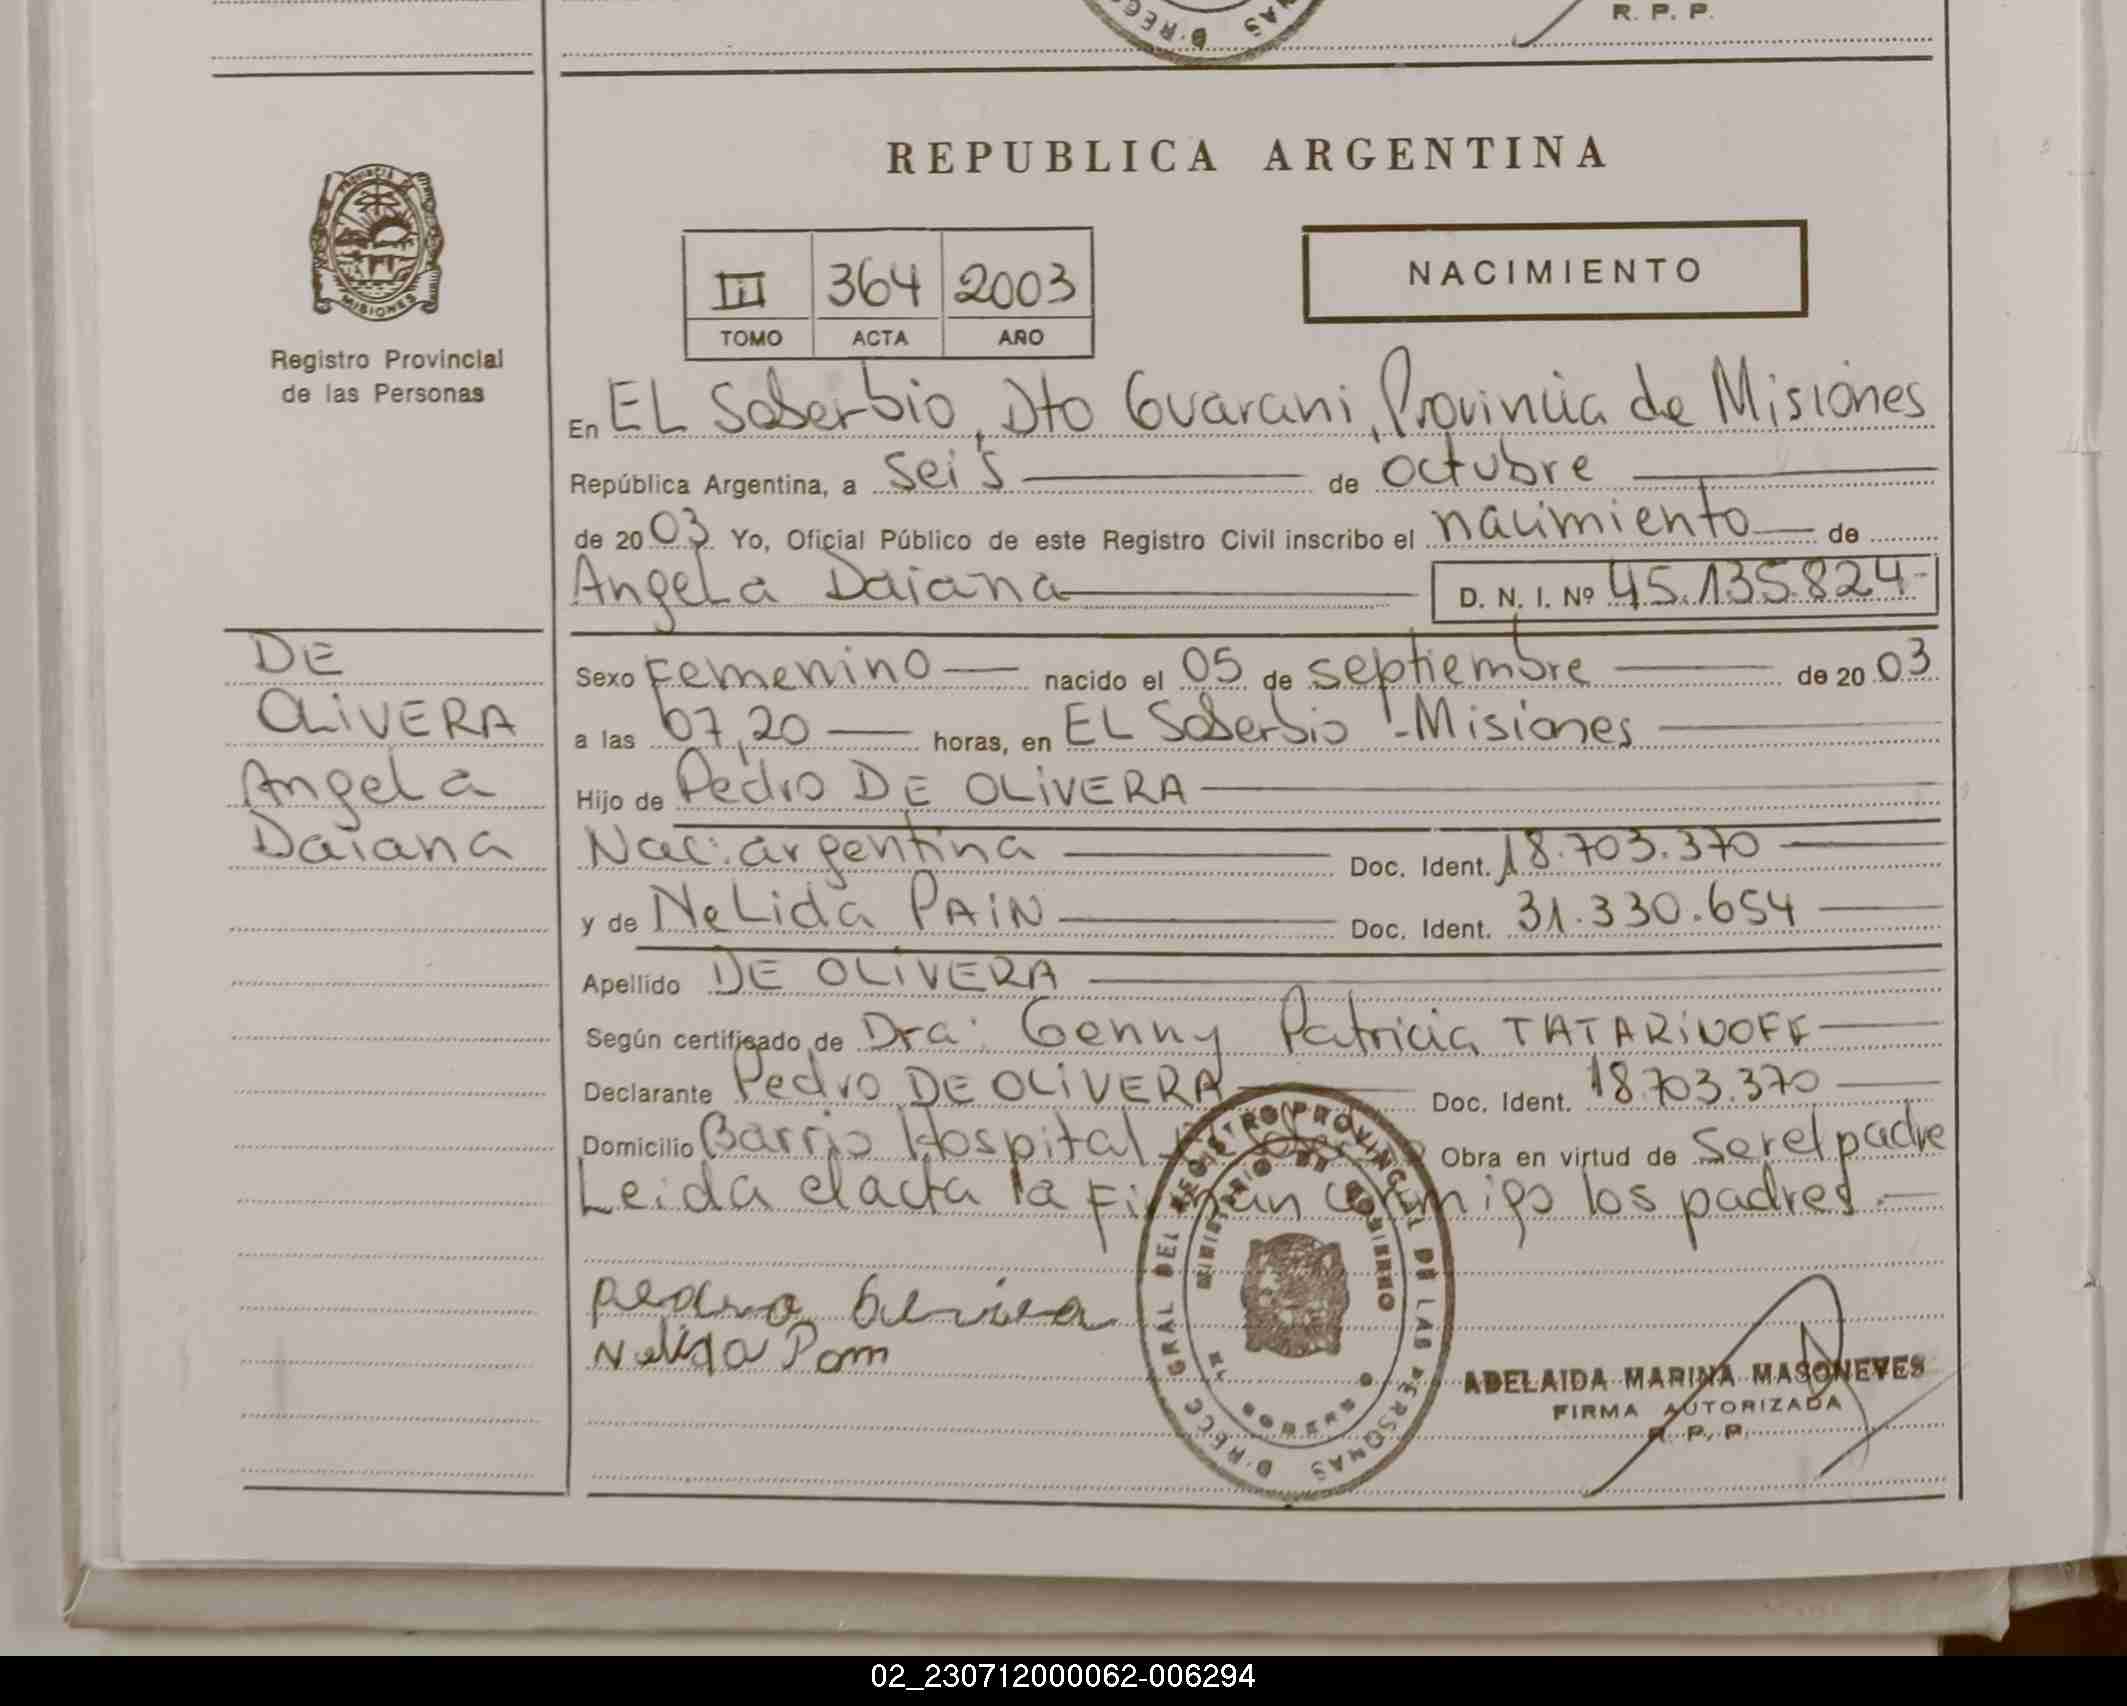 R. P. P.
REPUBLICA ARGENTINA
PROVINCIA DE
MISIONES
Registro Provincial
de las Personas
III 364 2003
TOMO ACTA AÑO
NACIMIENTO
En EL Soberbio, Dto Guarani, Provincia de Misiones
República Argentina, a seis de octubre
de 2003 Yo, Oficial Público de este Registro Civil inscribo el nacimiento de
Angela Daiana D. N. I. Nº 45.135.824
DE
OLiVERA
Angela
Daiana
Sexo Femenino nacido el 05 de septiembre de 2003
a las 07,20 horas, en EL Soberbio - Misiones
Hijo de Pedro DE OLiVERA
Nac: argentina Doc. Ident. 18.703.370
y de NeLida PAiN Doc. Ident. 31.330.654
Apellido DE OLiVERA
Según certificado de Dra: Genny Patricia TATARiNOFF
Declarante Pedro DE OLiVERA Doc. Ident. 18.703.370
Domicilio Barrio Hospital Obra en virtud de ser el padre
Leida el acta la firman conmigo los padres.
Pedro Olivera
Nelida Pain
D'RECC GRAL DEL REGISTRO PROVINCIAL DE LAS PERSONAS
MINISTERIO DE GOBIERNO
ADELAIDA MARINA MASONEVES
FIRMA AUTORIZADA
R. P. P.
02_230712000062-006294